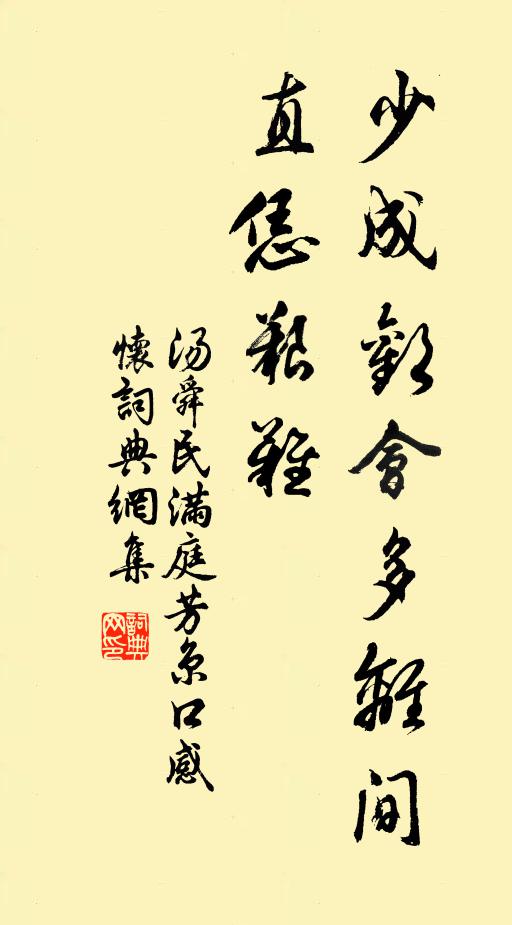 少成歡會多離间
直恁艱難
汤舜民滿庭芳京口感
懷詞典網集
詞典网印